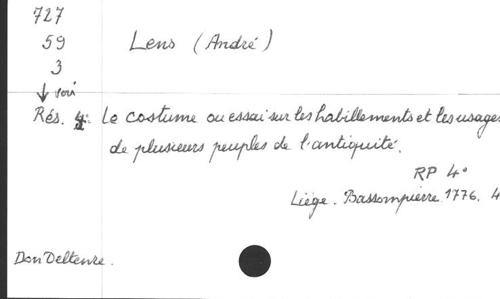 727
59
Lens (André)
3
↓ voir
Rés. 4. Le costume ou essai sur les habillements et les usages
de plusieurs peuples de l'antiquité.
RP 4°
Liége. Bassompierre. 1776. 4
Don Deltenre.